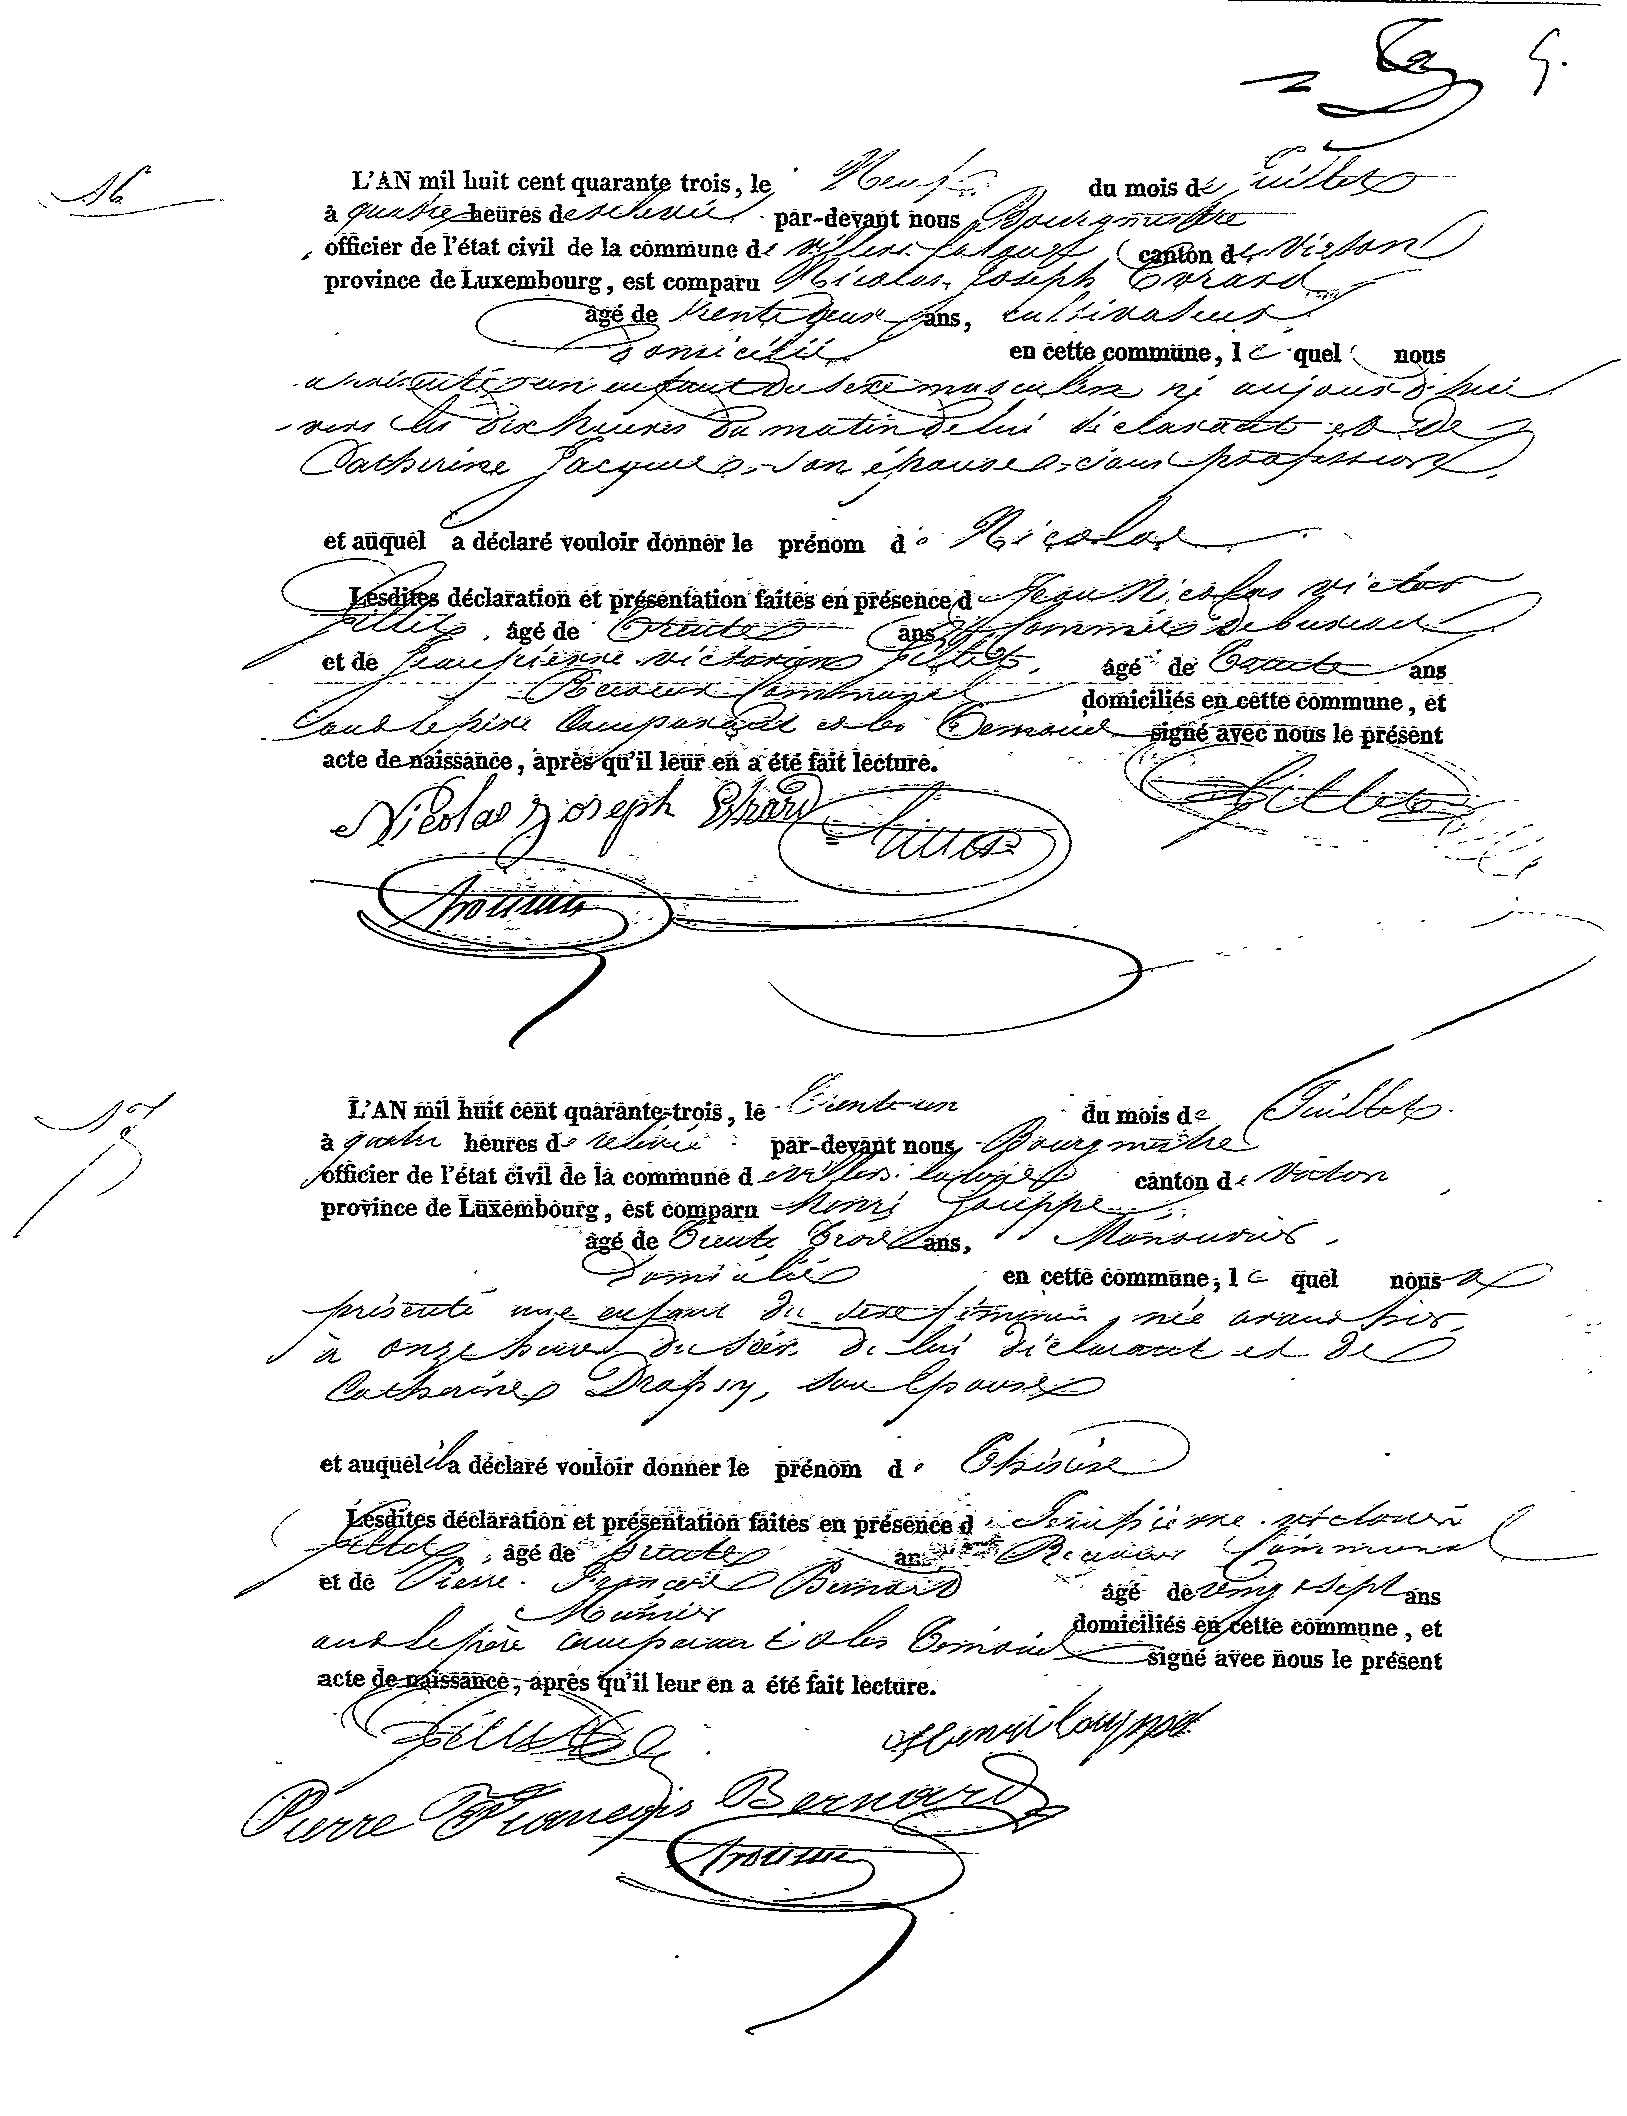 16
L'AN mil huit cent quarante trois, le Neuf du mois de Juillet
à quatre heures de relevée par-devant nous Bourgmestre
officier de l'état civil de la commune de Villers-la-loue canton de Virton
province de Luxembourg, est comparu Nicolas Joseph Evrard
âgé de trente deux ans, cultivateur
domicilié en cette commune, le quel nous
a présenté un enfant du sexe masculin né aujourd'hui
vers les dix heures du matin de lui déclarant et de
Catherine Jacques, son épouse, sans profession,
et auquel a déclaré vouloir donner le prénom de Nicolas
Lesdites déclaration et présentation faites en présence de Jean Nicolas Victor
âgé de trente ans, de bureau
et de Jean pierre victorien âgé de trente ans
Receveur Communal domiciliés en cette commune, et
ont le père Comparant et les Témoins signé avec nous le présent
acte de naissance, après qu'il leur en a été fait lecture.
Nicolas Joseph Evrard
17
L'AN mil huit cent quarante-trois, le trente-un du mois de Juillet
à quatre heures de relevée par-devant nous Bourgmestre
officier de l'état civil de la commune de Villers-la-loue canton de Virton
province de Luxembourg, est comparu Henri Gouppe
âgé de trente trois ans, Manouvrier
domicilié en cette commune, le quel nous a
présenté une enfant du sexe féminin née avant hier
à onze heures du soir de lui déclarant et de
Catherine Drapsy, son épouse
et auquel il a déclaré vouloir donner le prénom de Thérèse
Lesdites déclaration et présentation faites en présence de Jean pierre victorien
âgé de trente ans Receveur Communal
et de Pierre François Bernard âgé de vingt sept ans
Meunier domiciliés en cette commune, et
ont le père comparant et les Témoins signé avec nous le présent
acte de naissance, après qu'il leur en a été fait lecture.
Henri
Pierre François Bernard